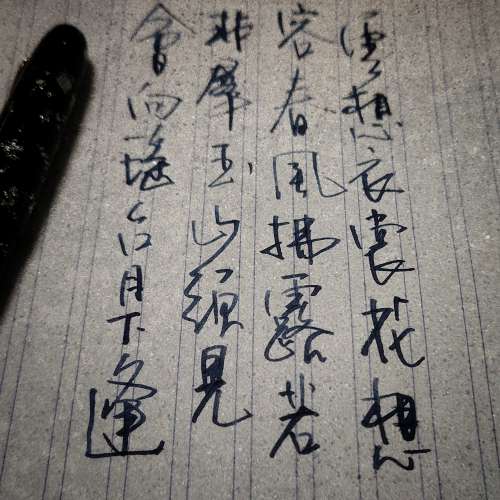 雲想衣裳花想
容春風拂露若
非羣玉山頭見
會向瑤台月下逢